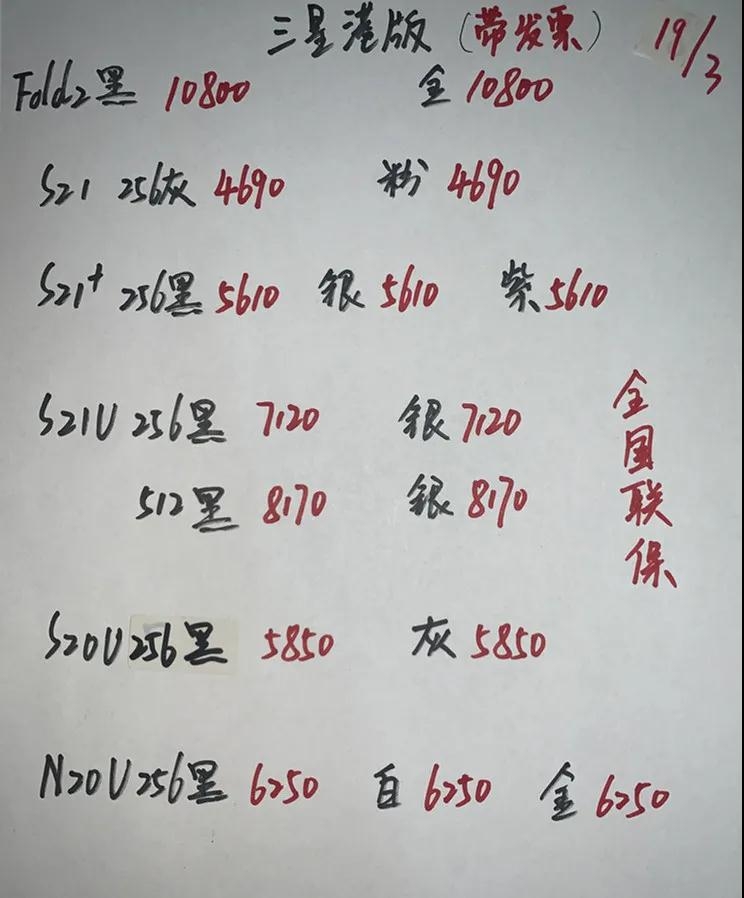 三星港版(带发票) 19/3
Fold2黑 10800 金 10800
S21 256灰 4690 粉 4690
S21+ 256黑 5610 银 5610 紫 5610
S21U 256黑 7120 银 7120
512黑 8170 银 8170
全国联保
S20U 256黑 5850 灰 5850
N20U 256黑 6250 白 6250 金 6250